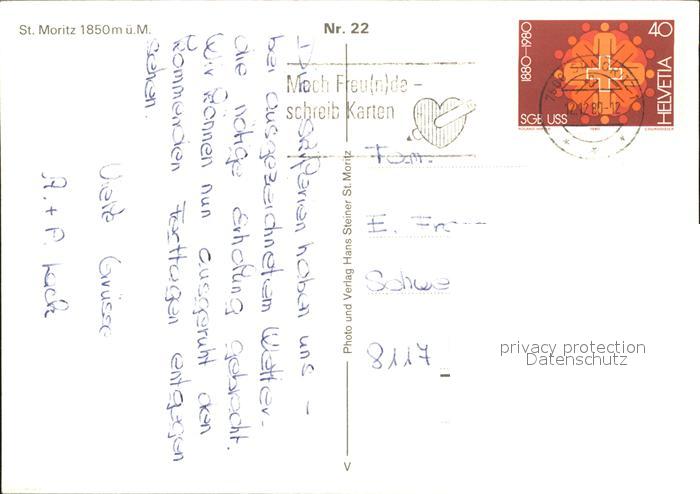 St. Moritz 1850 m ü. M.
Nr. 22
Mach Freu(n)de -
schreib Karten
1880-1980
40
HELVETIA
SGB USS
12.12.80-12
Die Skiferien haben uns -
bei ausgezeichnetem Wetter -
die nötige Erholung gebracht.
Wir können nun ausgeruht den
kommenden Festtagen entgegen
sehen.
Viele Grüsse
A. + P.
Fam.
E.
Schwe
8117
Photo und Verlag Hans Steiner St. Moritz
privacy protection
Datenschutz
V